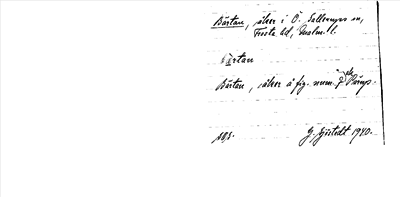 Bärtan, åker i Ö. Sallerups sn,
Frosta hd, Malm. l.
Bärtan
Bärtan, åker å fig. num.
G. Sjöstedt 1940.